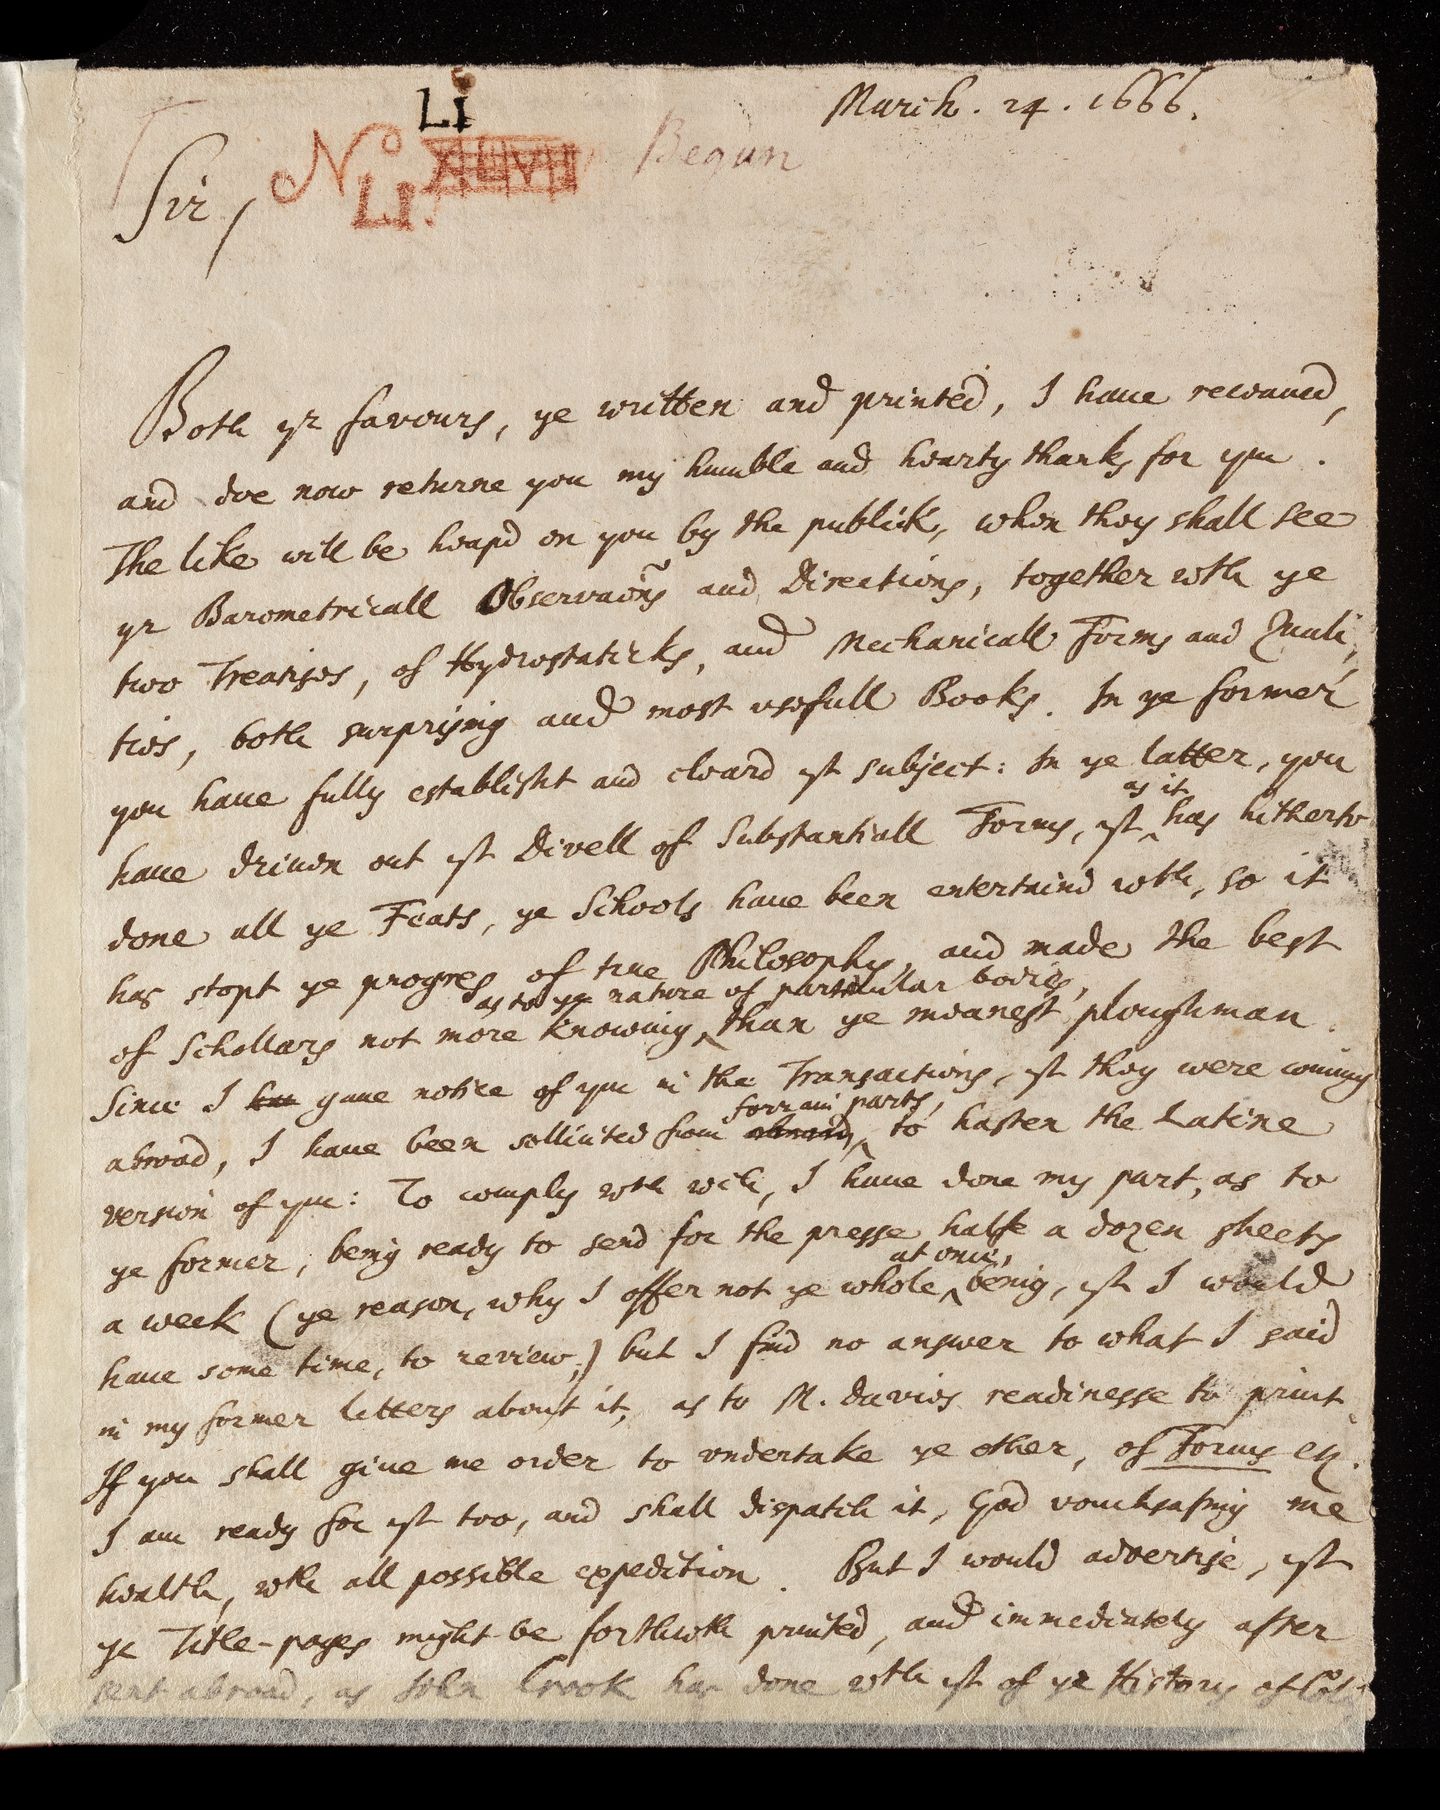 March. 24. 1666.
LI
No XLVII Begun
LI.
Sir,
Both yr favours, ye written and printed, I have received,
and doe now returne you my humble and hearty thanks for ym.
The like will be heap'd on you by the publick, when they shall see
yr Barometricall Observaõns and Directions, together wth ye
two Treatises, of Hydrostaticks, and Mechanicall Forms and Quali,
ties, both surprising and most usefull Books. In ye former
you have fully establisht and cleard yt subject: In ye latter, you
as it
have driven out yt Divell of Substantiall Forms, yt has hitherto
done all ye Feats, ye Schools have been entertaind wth, so it
has stopt ye progres of true Philosophy, and made the best
as to ye nature of particular bodies,
of Schollars not more knowing than ye meanest ploughman.
Since I gave notice of ym in the Transactions, yt they were coming
forrain parts,
abroad, I have been sollicited from abroad, to hasten the Latine
version of ym: To comply wth wch, I have done my part, as to
ye former, being ready to send for the presse halfe a dozen sheets
at once,
a week (ye reason, why I offer not ye whole being, yt I would
have some time, to review;) but I find no answer to what I said
in my former letters about it, as to M. Davies readinesse to print.
If you shall give me order to undertake ye other, of Forms etc.
I am ready for yt too, and shall dispatch it, God vouchsafing me
health, wth all possible expedition. But I would advertise, yt
ye Title-pages might be forthwth printed, and immediately after
sent abroad, as John Crook has done wth yt of ye History of Cold